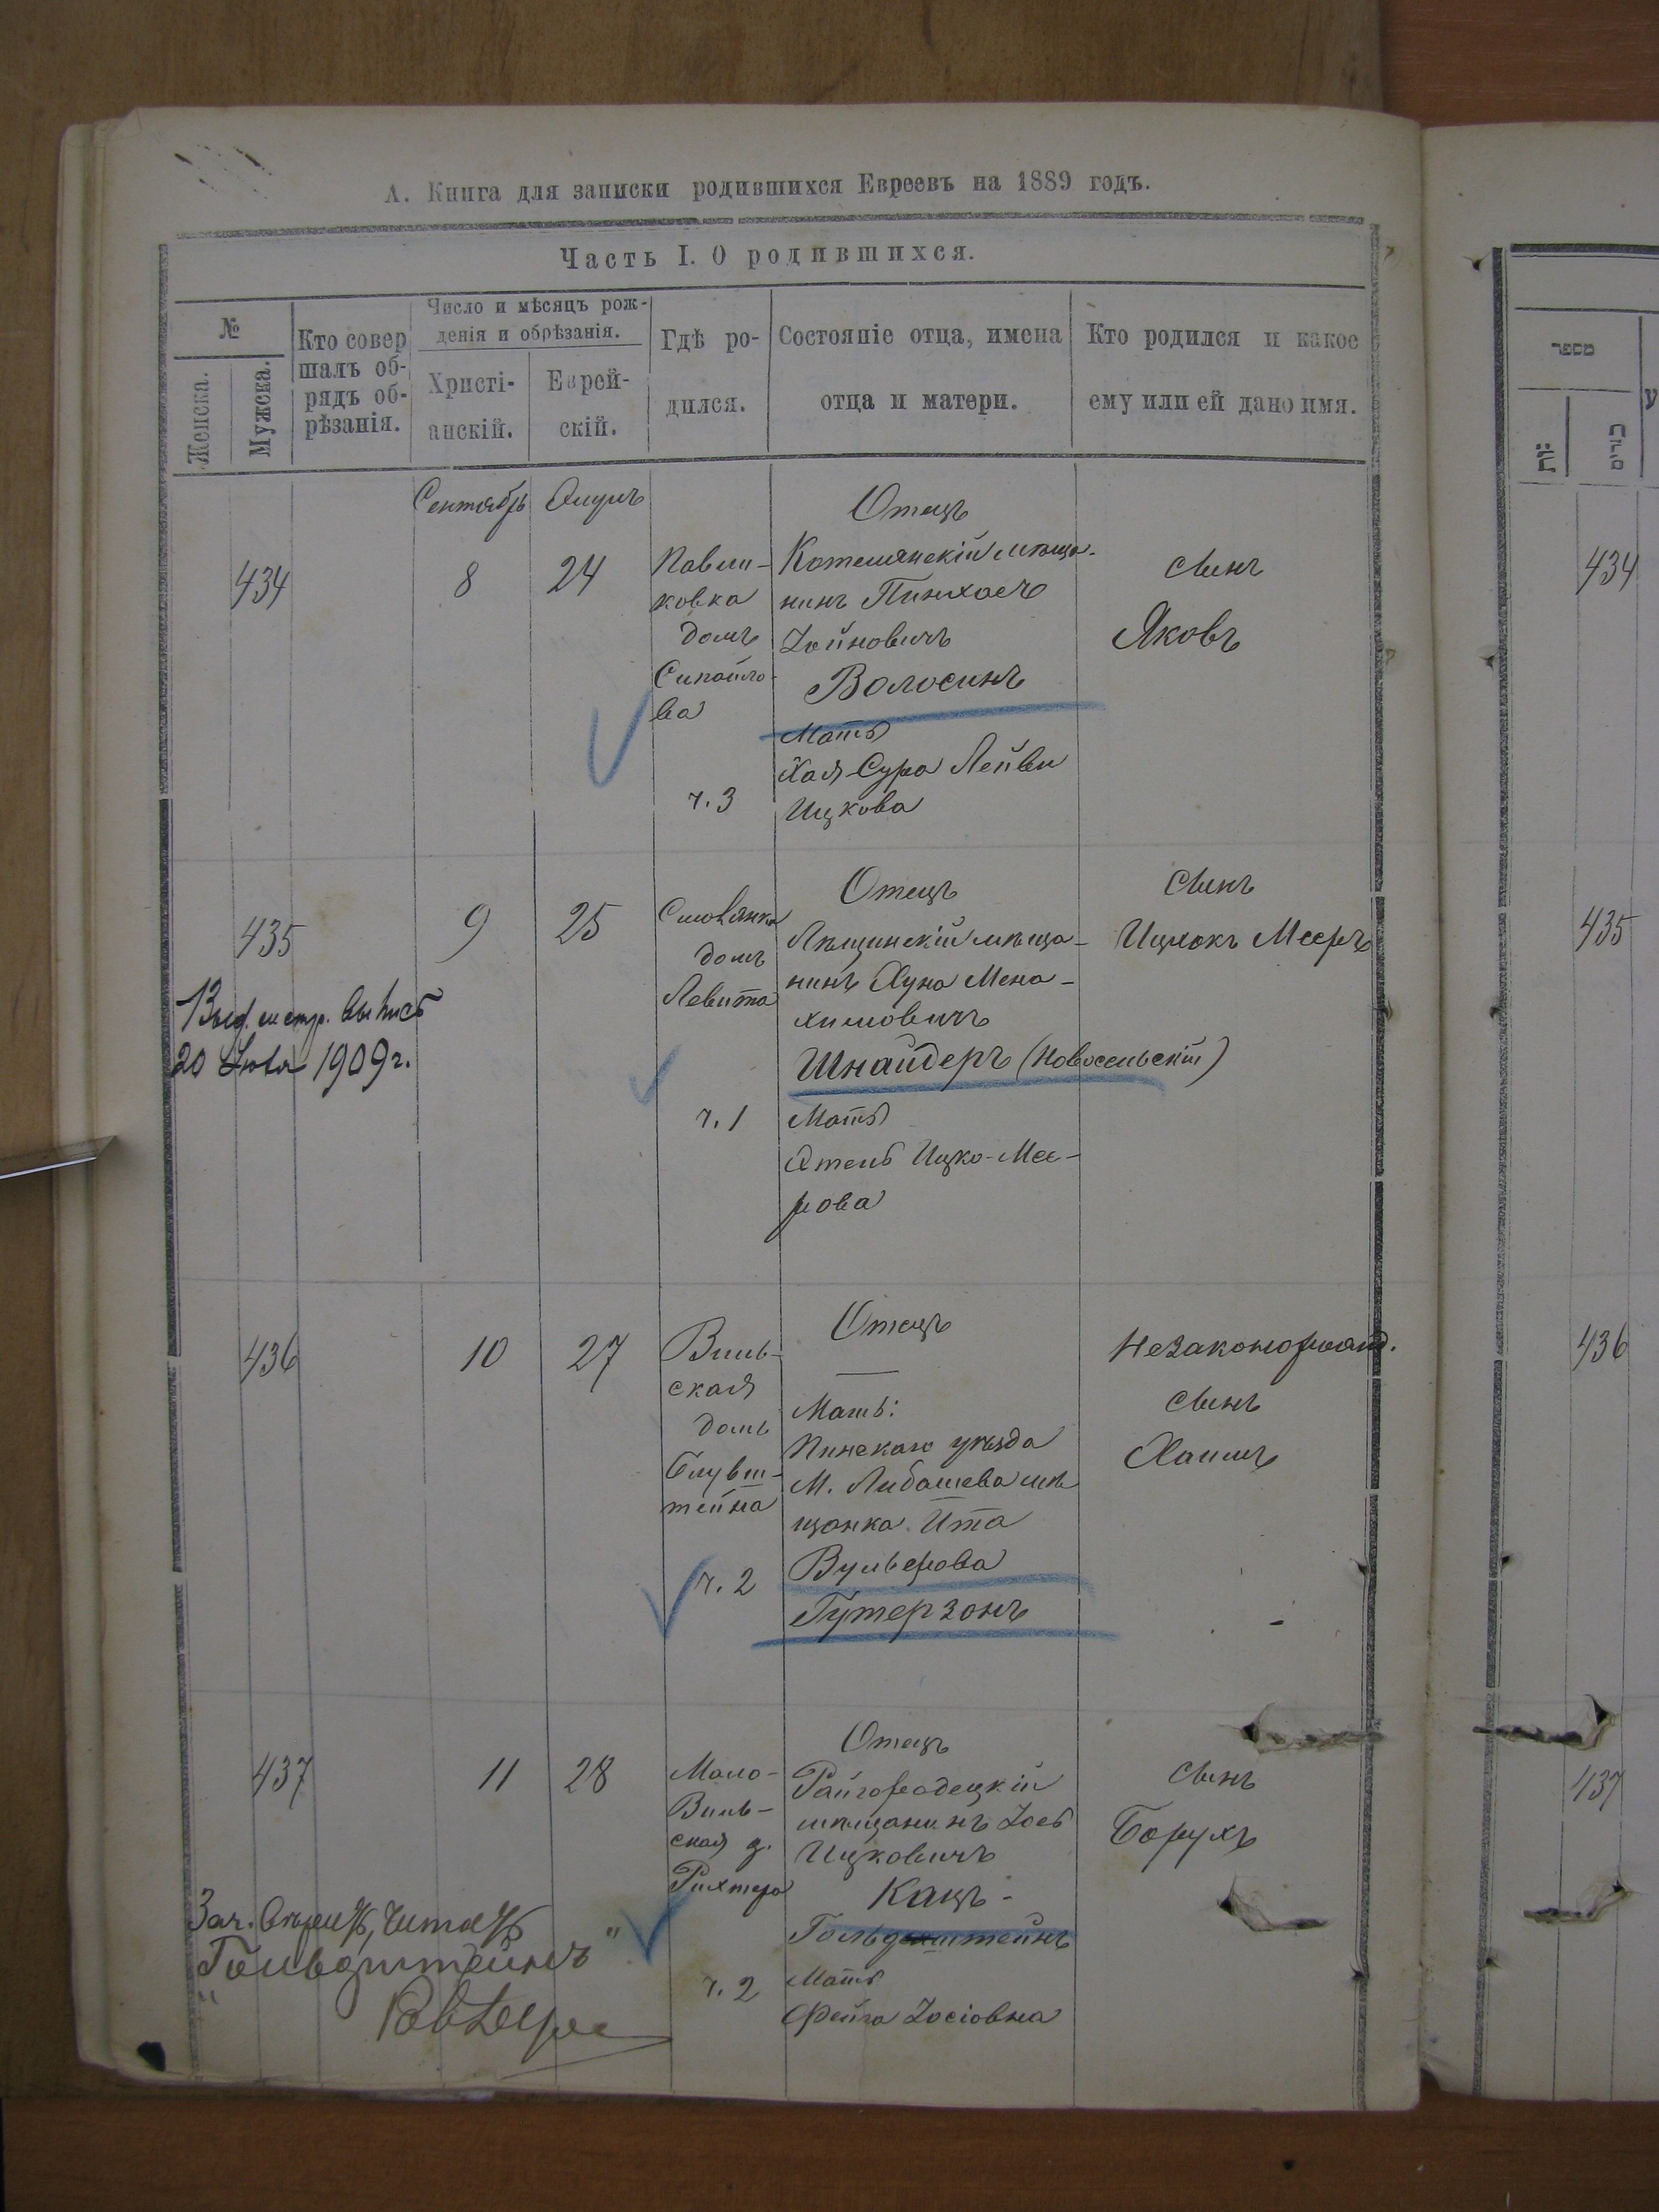 А. Книга для записки родившихся Евреевъ на 1889 годъ.
Часть I. О родившихся.
№
Женска.
Мужска.
Кто совер
шалъ об-
рядъ об-
рѣзанія.
Число и мѣсяцъ рож-
денія и обрѣзанія.
Христі-
анскій.
Еврей-
скій.
Гдѣ ро-
дился.
Состояніе отца, имена
отца и матери.
Кто родился и какое
ему или ей дано имя.
Сентябрь
434
8
24
Павли-
ковка
домъ
ва
ч. 3
Отецъ
мѣща-
нинъ Пинхосъ
Зойновичъ
Волосинъ
Мать
Хая-Сура Лейви
Ицкова
сынъ
Яковъ
435
9
25
домъ
Левита
ч. 1
Отецъ
мѣща-
нинъ Хуна Мена-
химовичъ
Шнайдеръ (Новосельскій)
Мать
Ицко-Мее-
рова
сынъ
Ицхокъ Мееръ
Выд. метр. выпись
20 1909 г.
436
10
27
Виль-
ская
домъ
тейна
ч. 2
Отецъ
—
Мать:
Пинскаго уѣзда
М. Любашева мѣ
щанка Ита
Вульфова
Гутерзонъ
Незаконорожд.
сынъ
Хаимъ
437
11
28
Мало-
Виль-
ская д.
Рихтера
ч. 2
Отецъ
Райгородецкій
мѣщанинъ Зосъ
Ицковичъ
Кацъ-
Гольдштейнъ
Мать
Фейга Іосіовна
сынъ
Борухъ
Зач.
"Гольдштейнъ"
434
435
436
437
מספר